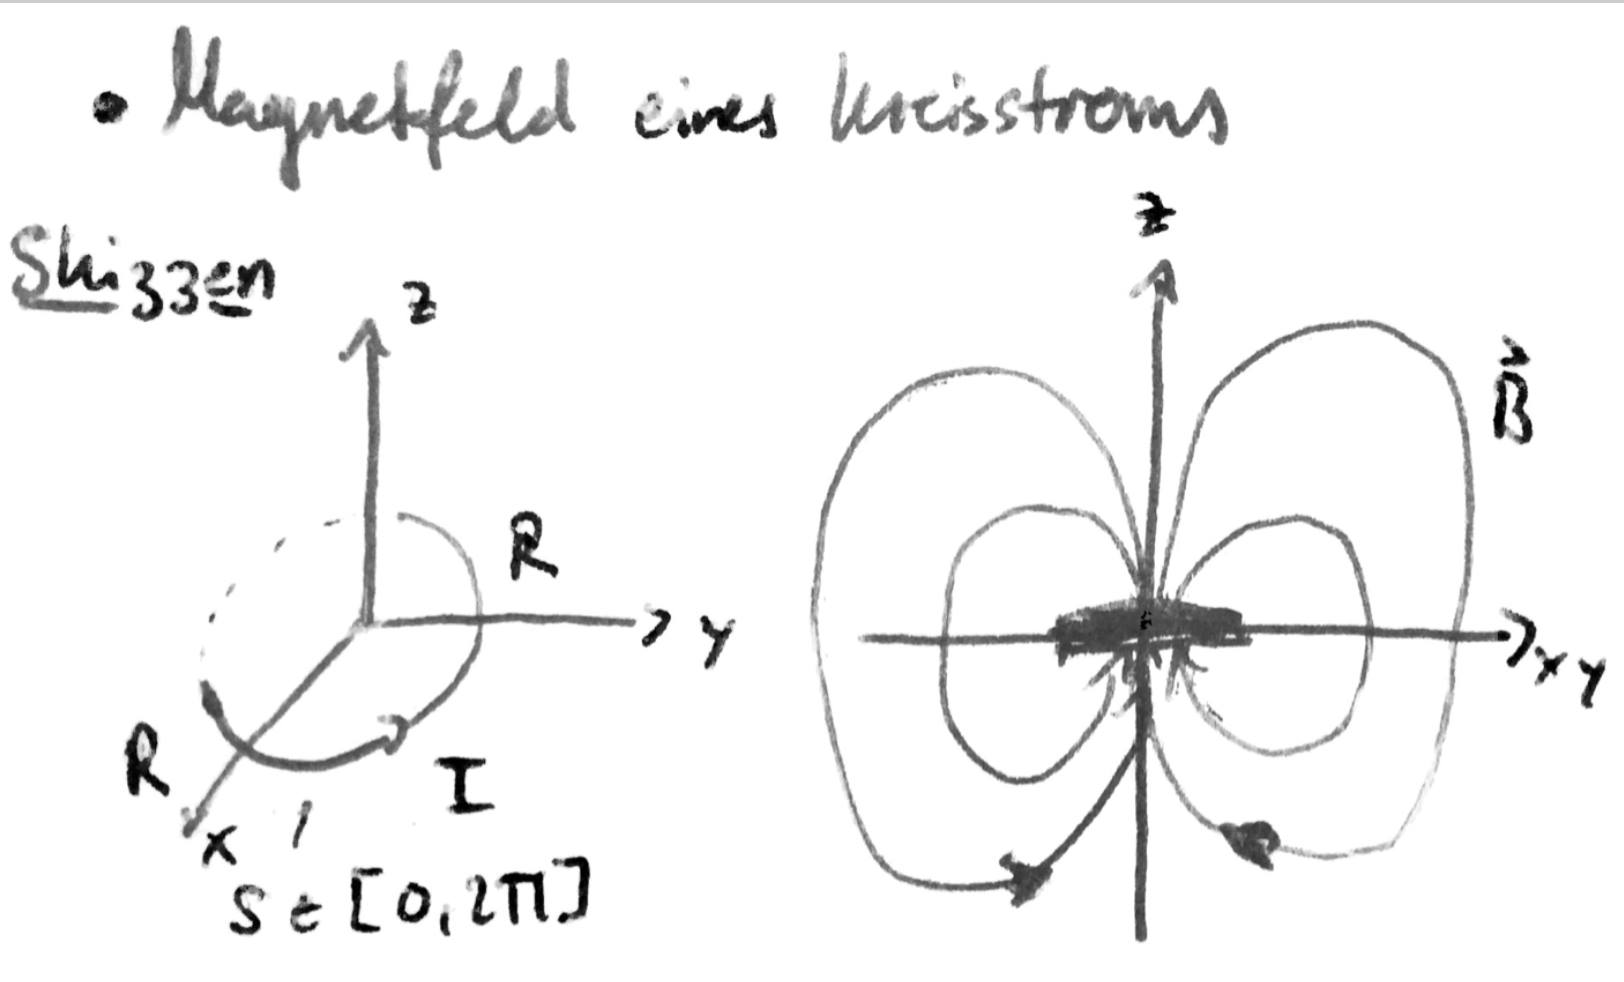 • Magnetfeld eines Kreisstroms
Skizzen
z
R
y
R
x
I
S ∈ [0, 2π]
z
B⃗
xy